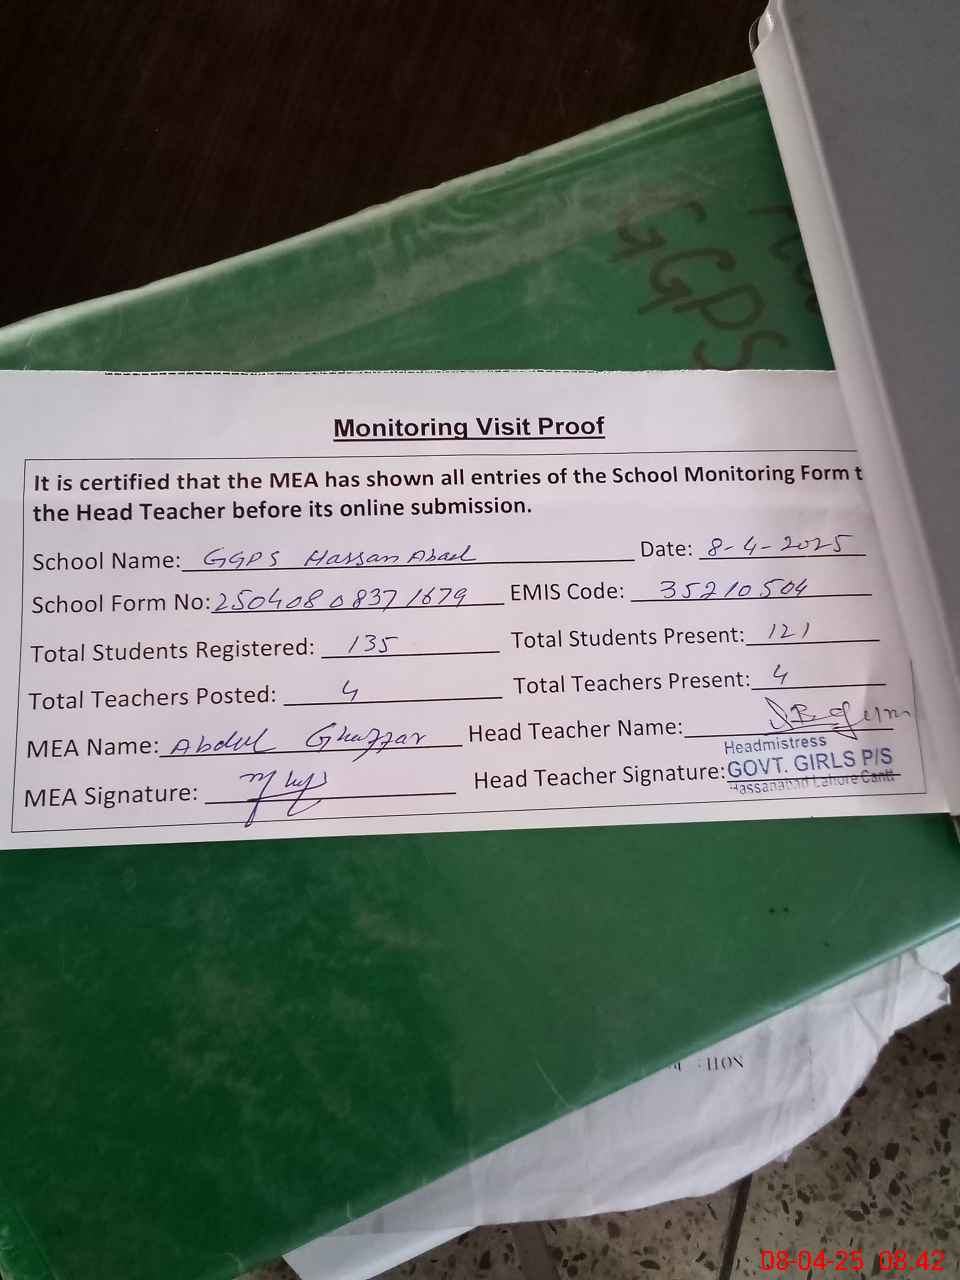 GGPS
Monitoring Visit Proof
It is certified that the MEA has shown all entries of the School Monitoring Form t
the Head Teacher before its online submission.
School Name: GGPS Hassan Abad Date: 8-4-2025
School Form No: 25040808371679 EMIS Code: 35210504
Total Students Registered: 135 Total Students Present: 121
Total Teachers Posted: 4 Total Teachers Present: 4
MEA Name: Abdul Ghaffar Head Teacher Name:
MEA Signature: Head Teacher Signature:
Headmistress
GOVT. GIRLS P/S
Hassanabad Lahore Cantt
08-04-25 08:42